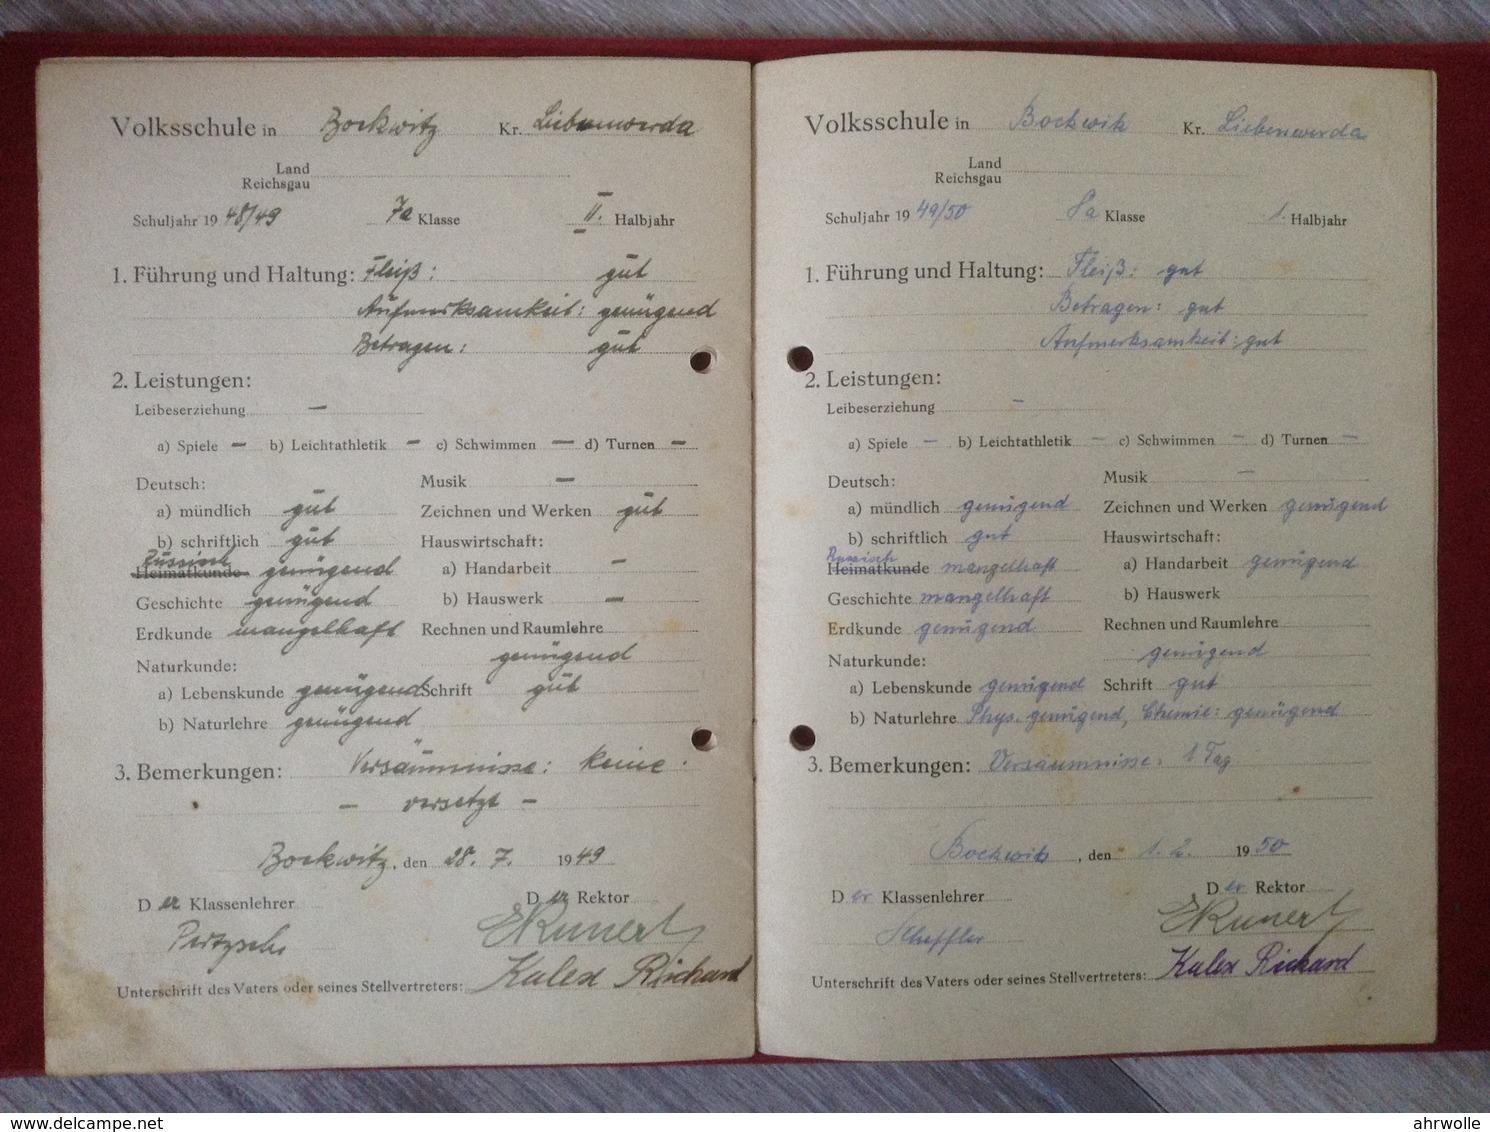 Volksschule in Bockwitz Kr. Liebenwerda
Land
Reichsgau
Schuljahr 19 48/49 7a Klasse II. Halbjahr
1. Führung und Haltung: Fleiß: gut
Aufmerksamkeit: genügend
Betragen: gut
2. Leistungen:
Leibeserziehung —
a) Spiele — b) Leichtathletik — c) Schwimmen — d) Turnen —
Deutsch:
a) mündlich gut
b) schriftlich gut
Russisch
Heimatkunde genügend
Geschichte genügend
Erdkunde mangelhaft
Naturkunde:
a) Lebenskunde genügend
b) Naturlehre genügend
Musik —
Zeichnen und Werken gut
Hauswirtschaft:
a) Handarbeit —
b) Hauswerk —
Rechnen und Raumlehre
genügend
Schrift gut
3. Bemerkungen: Versäumnisse: keine.
— versetzt —
Bockwitz, den 28. 7. 1949
Der Klassenlehrer Der Rektor
Pertzsch EKunert
Unterschrift des Vaters oder seines Stellvertreters: Kulex Richard
Volksschule in Bockwitz Kr. Liebenwerda
Land
Reichsgau
Schuljahr 19 49/50 8a Klasse 1. Halbjahr
1. Führung und Haltung: Fleiß: gut
Betragen: gut
Aufmerksamkeit: gut
2. Leistungen:
Leibeserziehung —
a) Spiele — b) Leichtathletik — c) Schwimmen — d) Turnen —
Deutsch:
a) mündlich genügend
b) schriftlich gut
Russisch
Heimatkunde mangelhaft
Geschichte mangelhaft
Erdkunde genügend
Naturkunde:
a) Lebenskunde genügend
b) Naturlehre Phys. genügend, Chemie: genügend
Musik —
Zeichnen und Werken genügend
Hauswirtschaft:
a) Handarbeit genügend
b) Hauswerk
Rechnen und Raumlehre
genügend
Schrift gut
3. Bemerkungen: Versäumnisse: 1 Tag
Bockwitz, den 1. 2. 1950
Der Klassenlehrer Der Rektor
Scheffler EKunert
Unterschrift des Vaters oder seines Stellvertreters: Kulex Richard
www.delcampe.net
ahrwolle